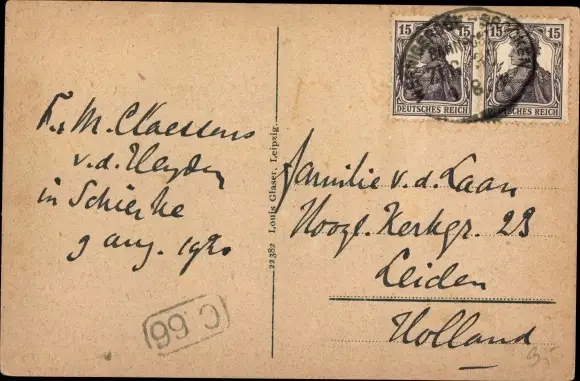 Fr. M. Claessens
v.d. Heyden
in Schierke
9 aug. 1920
22382 Louis Glaser, Leipzig.
15 15
DEUTSCHES REICH
15 15
DEUTSCHES REICH
familie v.d. Laan
Hoogl. Kerkgr. 23
Leiden
Holland
C 66